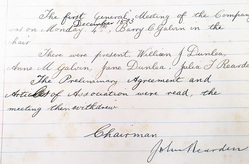 The first General Meeting of the Company
December 1883
on Monday 4th, Barry C Galvin in the
chair
There were present William J Dunlea,
Anne M Galvin, Jane Dunlea, Julia T Rearden
The Preliminary Agreement and
Articles of Association were read, the
meeting then withdrew.
Chairman
John Rearden